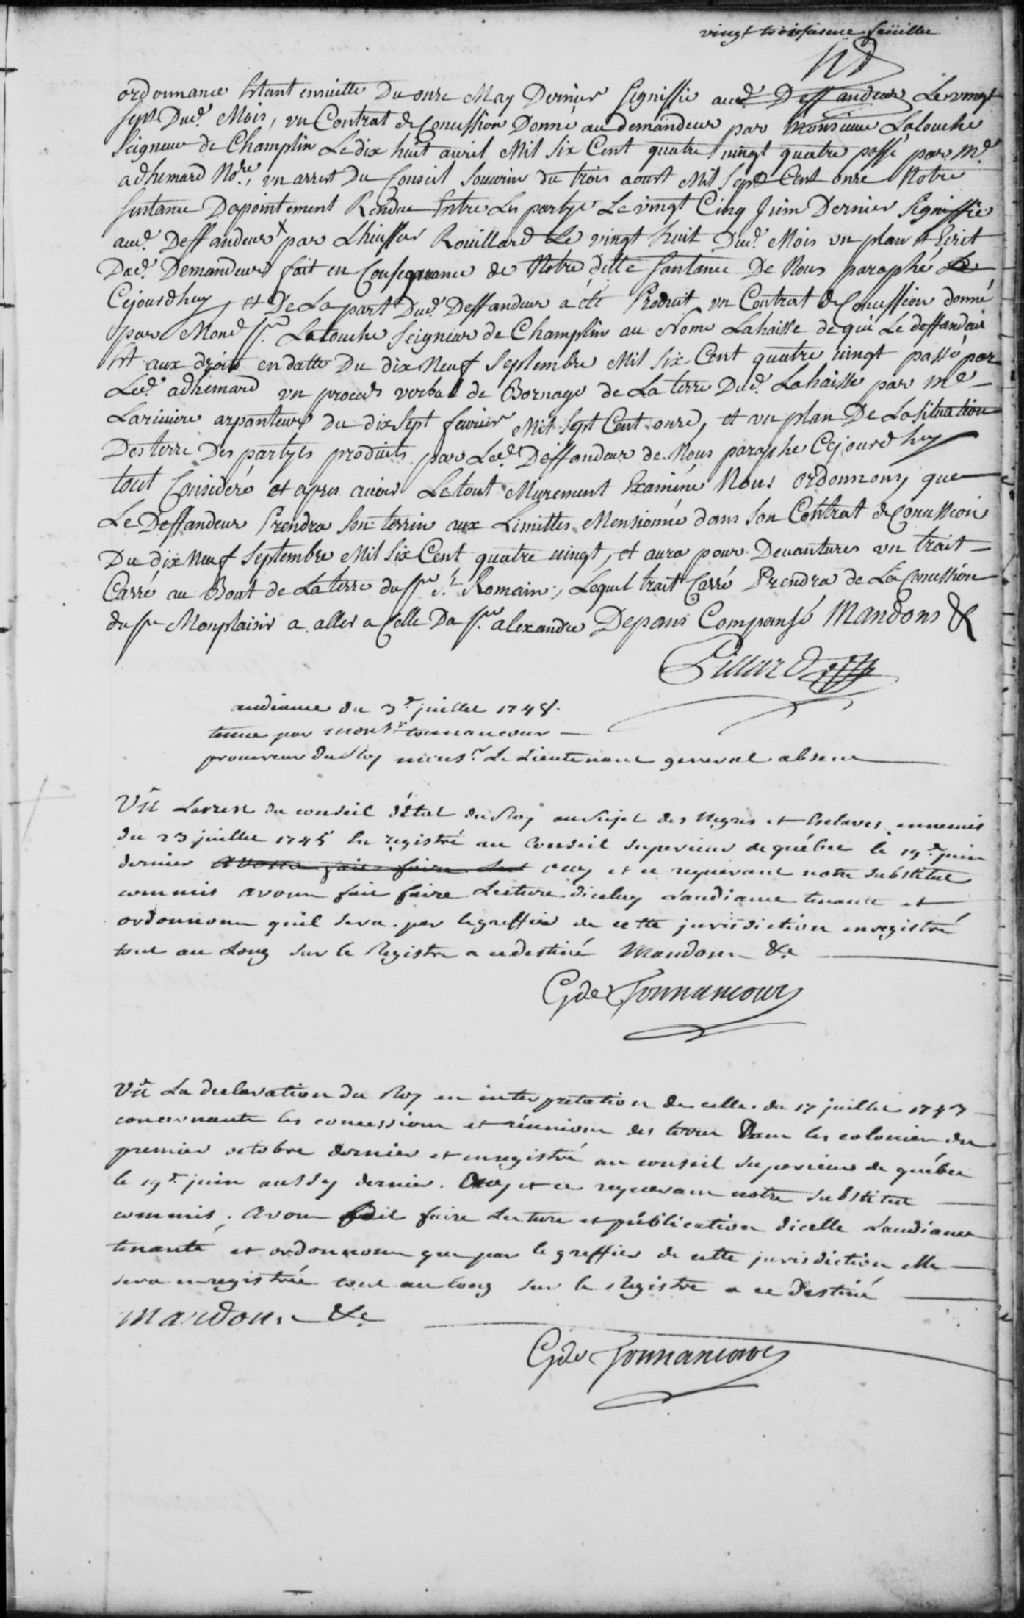 vingt troisiesme feüillet
ordonnance Estant ensuitte Du onze May Dernier Signiffié aud. Deffandeur Le vingt
Sept Dud. Mois, un Contrat de Concession Donné au demandeur par Monsieur Latouche
Seigneur de Champlin Le dix huit avril Mil Six Cent quatre vingt quatre passé par Me.
adhemard Nore., un arrest Du Conseil Souvrin du trois aoust Mil Sept Cent onze Notre
Santance Dapointement Rendue Entre Les partye Le vingt Cinq Juin Dernier Signiffié
aud. Deffandeur par Lhuissier Rouillard Le vingt huit Dud. Mois un plan Escrit
Dud. Demandeur fait en Consequance de Notre ditte Santance De Nous paraphé
Cejourdhuy, et De La part Dud. Deffandeur a été Produit, un Contrat de Concession donné
par Mond. Sr. Latouche Seigneur de Champlin au Nomé Lahaisse de qui Le deffandeur
Est aux droits en datte Du dix Neuf Septembre Mil Six Cent quatre vingt passé par
Led. adhemard un procais verbal de Bornage de La terre Dud. Lahaisse par Me
Lariviere arpanteur du dix Sept fevrier Mil Sept Cent onze, et un plan De La Situation
Des terre Des partyes produits par Led. Deffandeur de Nous paraphé Cejourdhuy
tout Considéré et apres avoir Le tout Meurement Examiné Nous ordonnons que
Le Deffandeur Prendra Son terrin aux Limittes Mensionné dans Son Contrat de Concession
Du dix Neuf Septembre Mil Six Cent quatre vingt, et aura pour Devantures un trait
Carré au Bout de La terre du Sr. St. Romain, Lequel trait Carré Prendra de La Concession
du Sr Monplaisir a aller a Celle Du Sr. alexandre Depans Compansé Mandons &
Pillard
audiance du 3e. juillet 1748.
tenue par monsr. tonnancour
procureur du Roy monsr. Le Lieutenant general absent
Vû Larrest du conseil d'état du Roy au Sujet des Negres et Esclaves ennemis
du 23 juillet 1745 En registré au Conseil Superieur de québec le 19e. juin
dernier ouy et ce requerant notre Substitut
commis avons fait faire Lecture diceluy Laudiance tenante et
ordonnons quil Sera par le greffier de cette jurisdiction enregistré
tout au Long Sur le Registre a ce destiné Mandons &c
G de Tonnancour
Vû La declaration du Roy en interpretation de celle du 17 juillet 1743
concernante les concessions et réunions des terres Dans les colonies du
premier octobre dernier et enregistré au conseil Superieur de québec
le 19e. juin aussy dernier. Ouy et ce requerant notre Substitut
commis. avons fait faire Lecture et publication dicelle Laudiance
tenante et ordonnons que par le greffier de cette jurisdiction elle
Sera enregistrée tout au Long Sur le Registre a ce Destiné
Mandons &c
G de Tonnancour